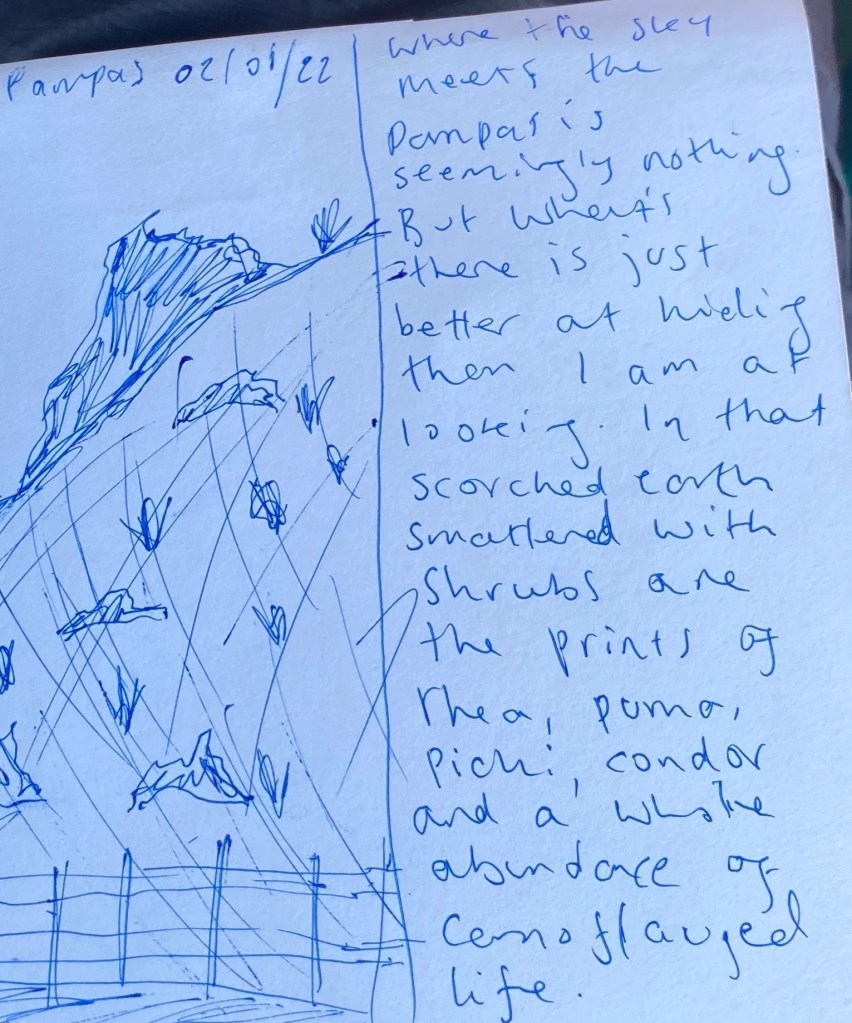 Pampas 02/01/22
where the sky
meets the
Pampas is
seemingly nothing.
But what's
there is just
better at hiding
then I am at
looking. In that
scorched earth
smattered with
shrubs are
the prints of
rhea, puma,
pichi, condor
and a whole
abundace of
camoflauged
life.